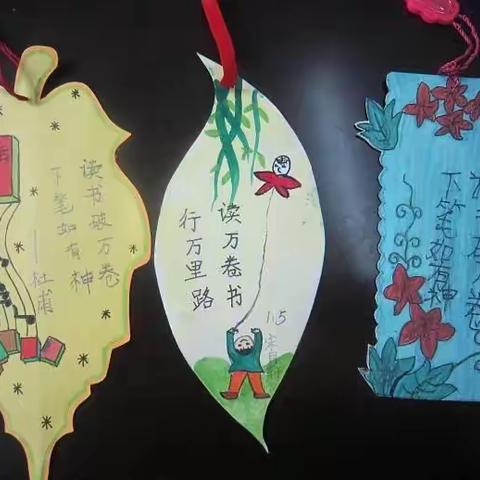 读书破万卷
下笔如有神
—杜甫
读万卷书
行万里路
1.5
下笔如有神